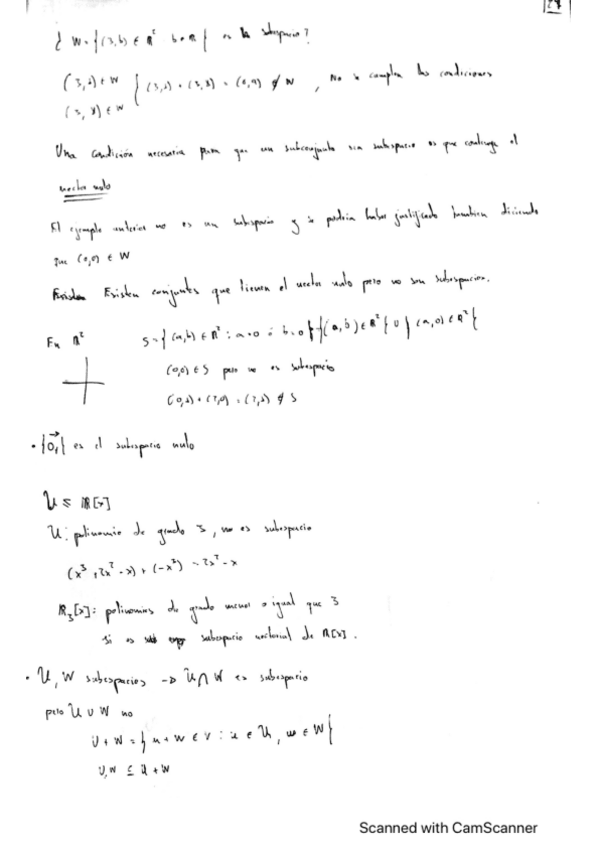 ¿ W = {(3,b) ∈ R² b∈R} es un subespacio?
(3,2) ∈ W } (3,2) + (3,8) = (6,10) ∉ W , No se cumplen las condiciones
(3,8) ∈ W
Una condición necesaria para que un subconjunto sea subespacio es que contenga el
vector nulo
El ejemplo anterior no es un subespacio y se podría haber justificado tambien diciendo
que (0,0) ∈ W
Existen conjuntos que tienen el vector nulo pero no son subespacios.
En R² S = { (a,b) ∈ R² : a=0 ó b=0 }
(0,0) ∈ S pero no es subespacio
(0,2) + (7,0) = (7,2) ∉ S
• {0} es el subespacio nulo
U ≤ R[x]
U: polinomio de grado 3, no es subespacio
(x³ + 2x² - x) + (-x³) = 2x² - x
R₃[x]: polinomios de grado menor o igual que 3
si es subespacio vectorial de R[x].
• U, W subespacios → U ∩ W es subespacio
pero U ∪ W no
U + W = { u + w ∈ V : u ∈ U, w ∈ W }
U, W ⊆ U + W
Scanned with CamScanner